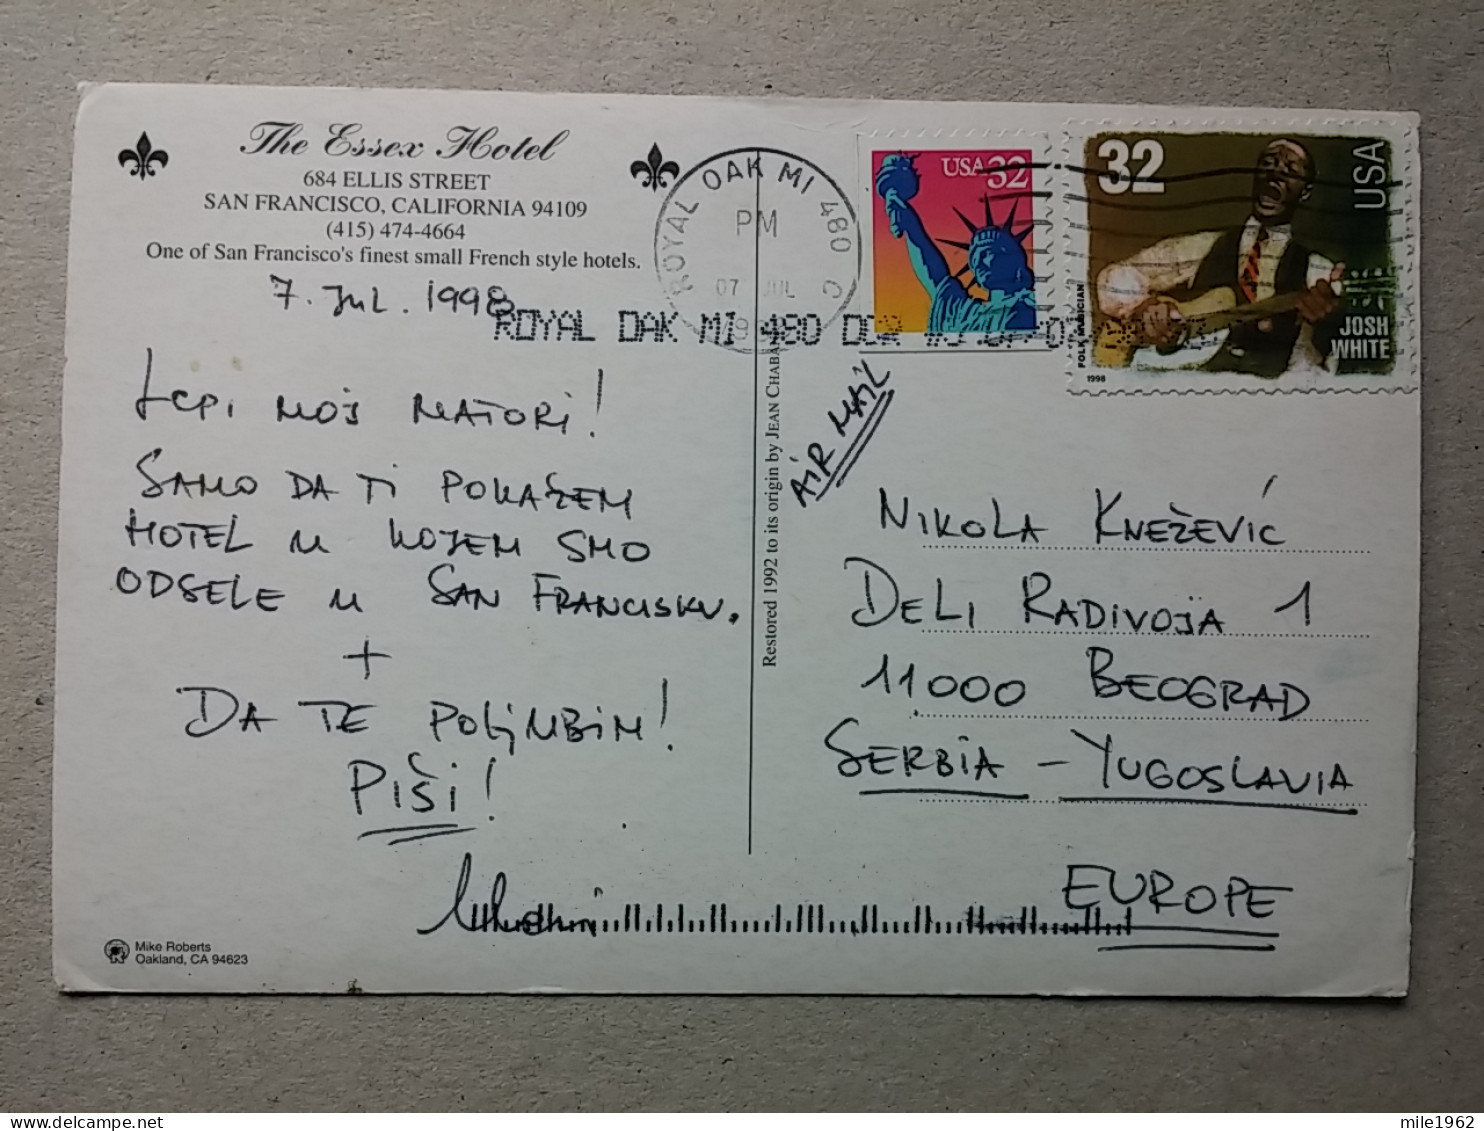 The Essex Hotel
684 ELLIS STREET
SAN FRANCISCO, CALIFORNIA 94109
(415) 474-4664
One of San Francisco's finest small French style hotels.
7. JUL. 1998
LEPI MOJ MATORI!
SAMO DA TI POKAŽEM
HOTEL U KOJEM SMO
ODSELE U SAN FRANCISKU.
+
DA TE POLJUBIM!
PIŠI!
Mike Roberts
Oakland, CA 94623
Restored 1992 to its origin by JEAN CHABAN
ROYAL OAK MI 480
PM
07 JUL
ROYAL OAK MI 480
USA 32
32
USA
FOLK MUSICIAN
JOSH
WHITE
1998
AIR MAIL
NIKOLA KNEŽEVIĆ
DELI RADIVOJA 1
11000 BEOGRAD
SERBIA - YUGOSLAVIA
EUROPE
mile1962